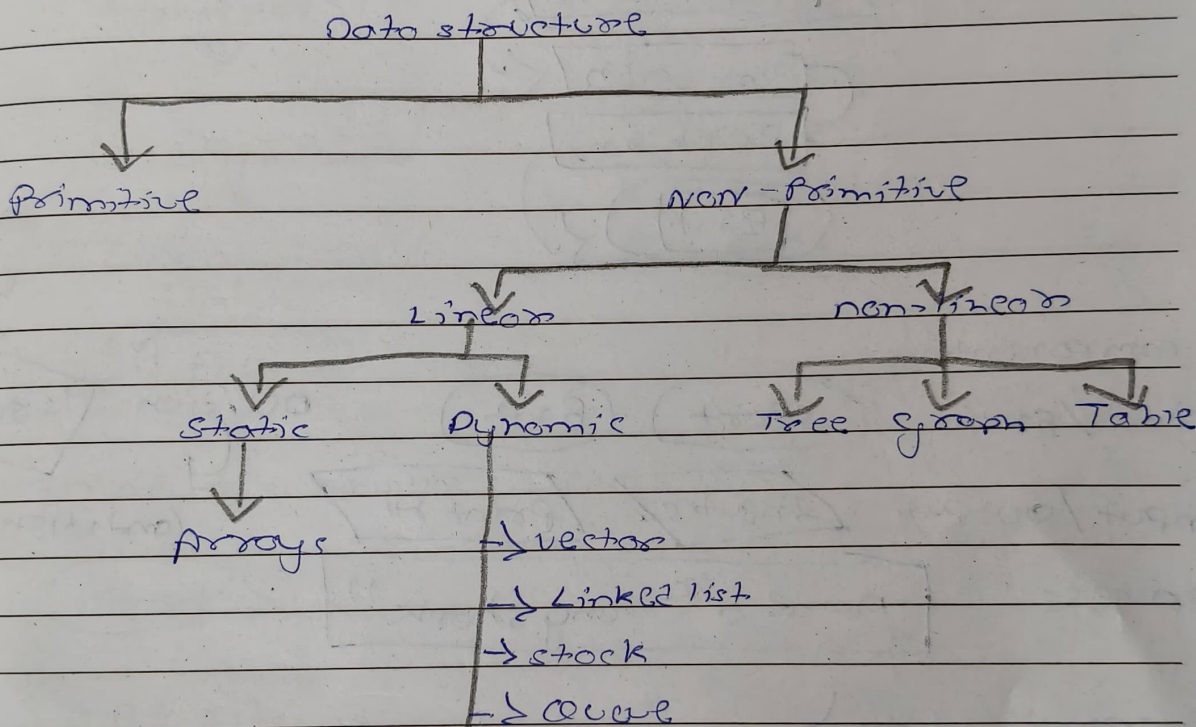 Data structure
Primitive
Non-Primitive
Linear
non-linear
Static
Dynamic
Tree
graph
Table
Arrays
→ vector
→ Linked list
→ stack
→ Queue